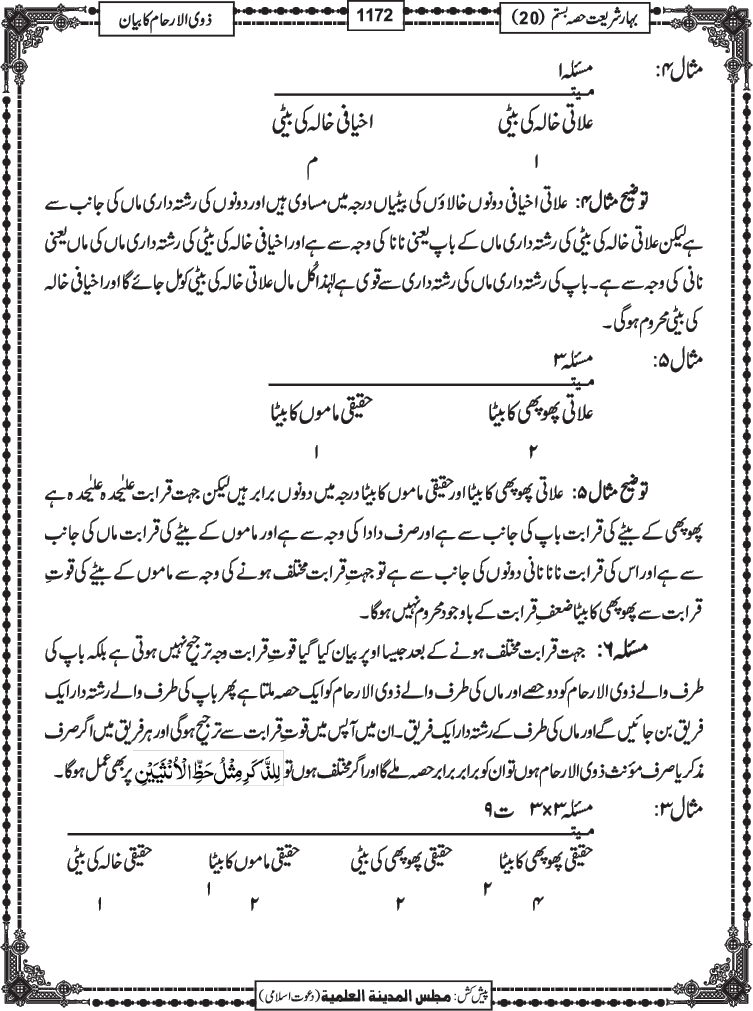 بہارِ شریعت حصہ بستم (20)
1172
ذوی الارحام کا بیان
مثال ۴: مسئلہ ۱
میـــت
علاتی خالہ کی بیٹی اخیافی خالہ کی بیٹی
۱ م
توضیح مثال ۴: علاتی اخیافی دونوں خالاؤں کی بیٹیاں درجہ میں مساوی ہیں اور دونوں کی رشتہ داری ماں کی جانب سے
ہے لیکن علاتی خالہ کی بیٹی کی رشتہ داری ماں کے باپ یعنی نانا کی وجہ سے ہے اور اخیافی خالہ کی بیٹی کی رشتہ داری ماں کی ماں یعنی
نانی کی وجہ سے ہے۔ باپ کی رشتہ داری ماں کی رشتہ داری سے قوی ہے لہٰذا کُل مال علاتی خالہ کی بیٹی کو مل جائے گا اور اخیافی خالہ
کی بیٹی محروم ہوگی۔
مثال ۵: مسئلہ ۳
میـــت
علاتی پھوپھی کا بیٹا حقیقی ماموں کا بیٹا
۲ ۱
توضیح مثال ۵: علاتی پھوپھی کا بیٹا اور حقیقی ماموں کا بیٹا درجہ میں دونوں برابر ہیں لیکن جہت قرابت علیٰحدہ علیٰحدہ ہے
پھوپھی کے بیٹے کی قرابت باپ کی جانب سے ہے اور صرف دادا کی وجہ سے ہے اور ماموں کے بیٹے کی قرابت ماں کی جانب
سے ہے اور اس کی قرابت نانا نانی دونوں کی جانب سے ہے تو جہتِ قرابت مختلف ہونے کی وجہ سے ماموں کے بیٹے کی قوتِ
قرابت سے پھوپھی کا بیٹا ضعفِ قرابت کے باوجود محروم نہیں ہوگا۔
مسئلہ ۶: جہت قرابت مختلف ہونے کے بعد جیسا اوپر بیان کیا گیا قوتِ قرابت وجہ ترجیح نہیں ہوتی ہے بلکہ باپ کی
طرف والے ذوی الارحام کو دو حصے اور ماں کی طرف والے ذوی الارحام کو ایک حصہ ملتا ہے پھر باپ کی طرف والے رشتہ دار ایک
فریق بن جائیں گے اور ماں کی طرف کے رشتہ دار ایک فریق۔ ان میں آپس میں قوتِ قرابت سے ترجیح ہوگی اور ہر فریق میں اگر صرف
مذکر یا صرف مؤنث ذوی الارحام ہوں تو ان کو برابر برابر حصہ ملے گا اور اگر مختلف ہوں تو لِلذَّكَرِ مِثْلُ حَظِّ الْاُنْثَيَيْنِ پر بھی عمل ہوگا۔
مثال ۳: مسئلہ ۳×۳ ت ۹
میـــت
حقیقی پھوپھی کا بیٹا حقیقی پھوپھی کی بیٹی حقیقی ماموں کا بیٹا حقیقی خالہ کی بیٹی
۲ ۱
۴ ۲ ۲ ۱
پیش کش: مجلس المدینة العلمیة (دعوت اسلامی)